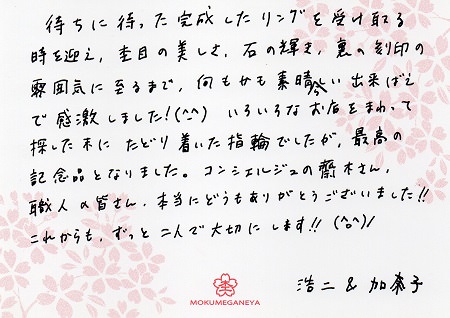 待ちに待った完成したリングを受け取る
時を迎え、杢目の美しさ、石の輝き、裏の刻印の
雰囲気に至るまで、何もかも素晴しい出来ばえ
で感激しました!(^-^) いろいろなお店をまわって
探した末にたどり着いた指輪でしたが、最高の
記念品となりました。コンシェルジュの齋木さん、
職人の皆さん、本当にどうもありがとうございました!!
これからも、ずっと二人で大切にします!! (^o^)/
浩二 & 加奈子
MOKUMEGANEYA